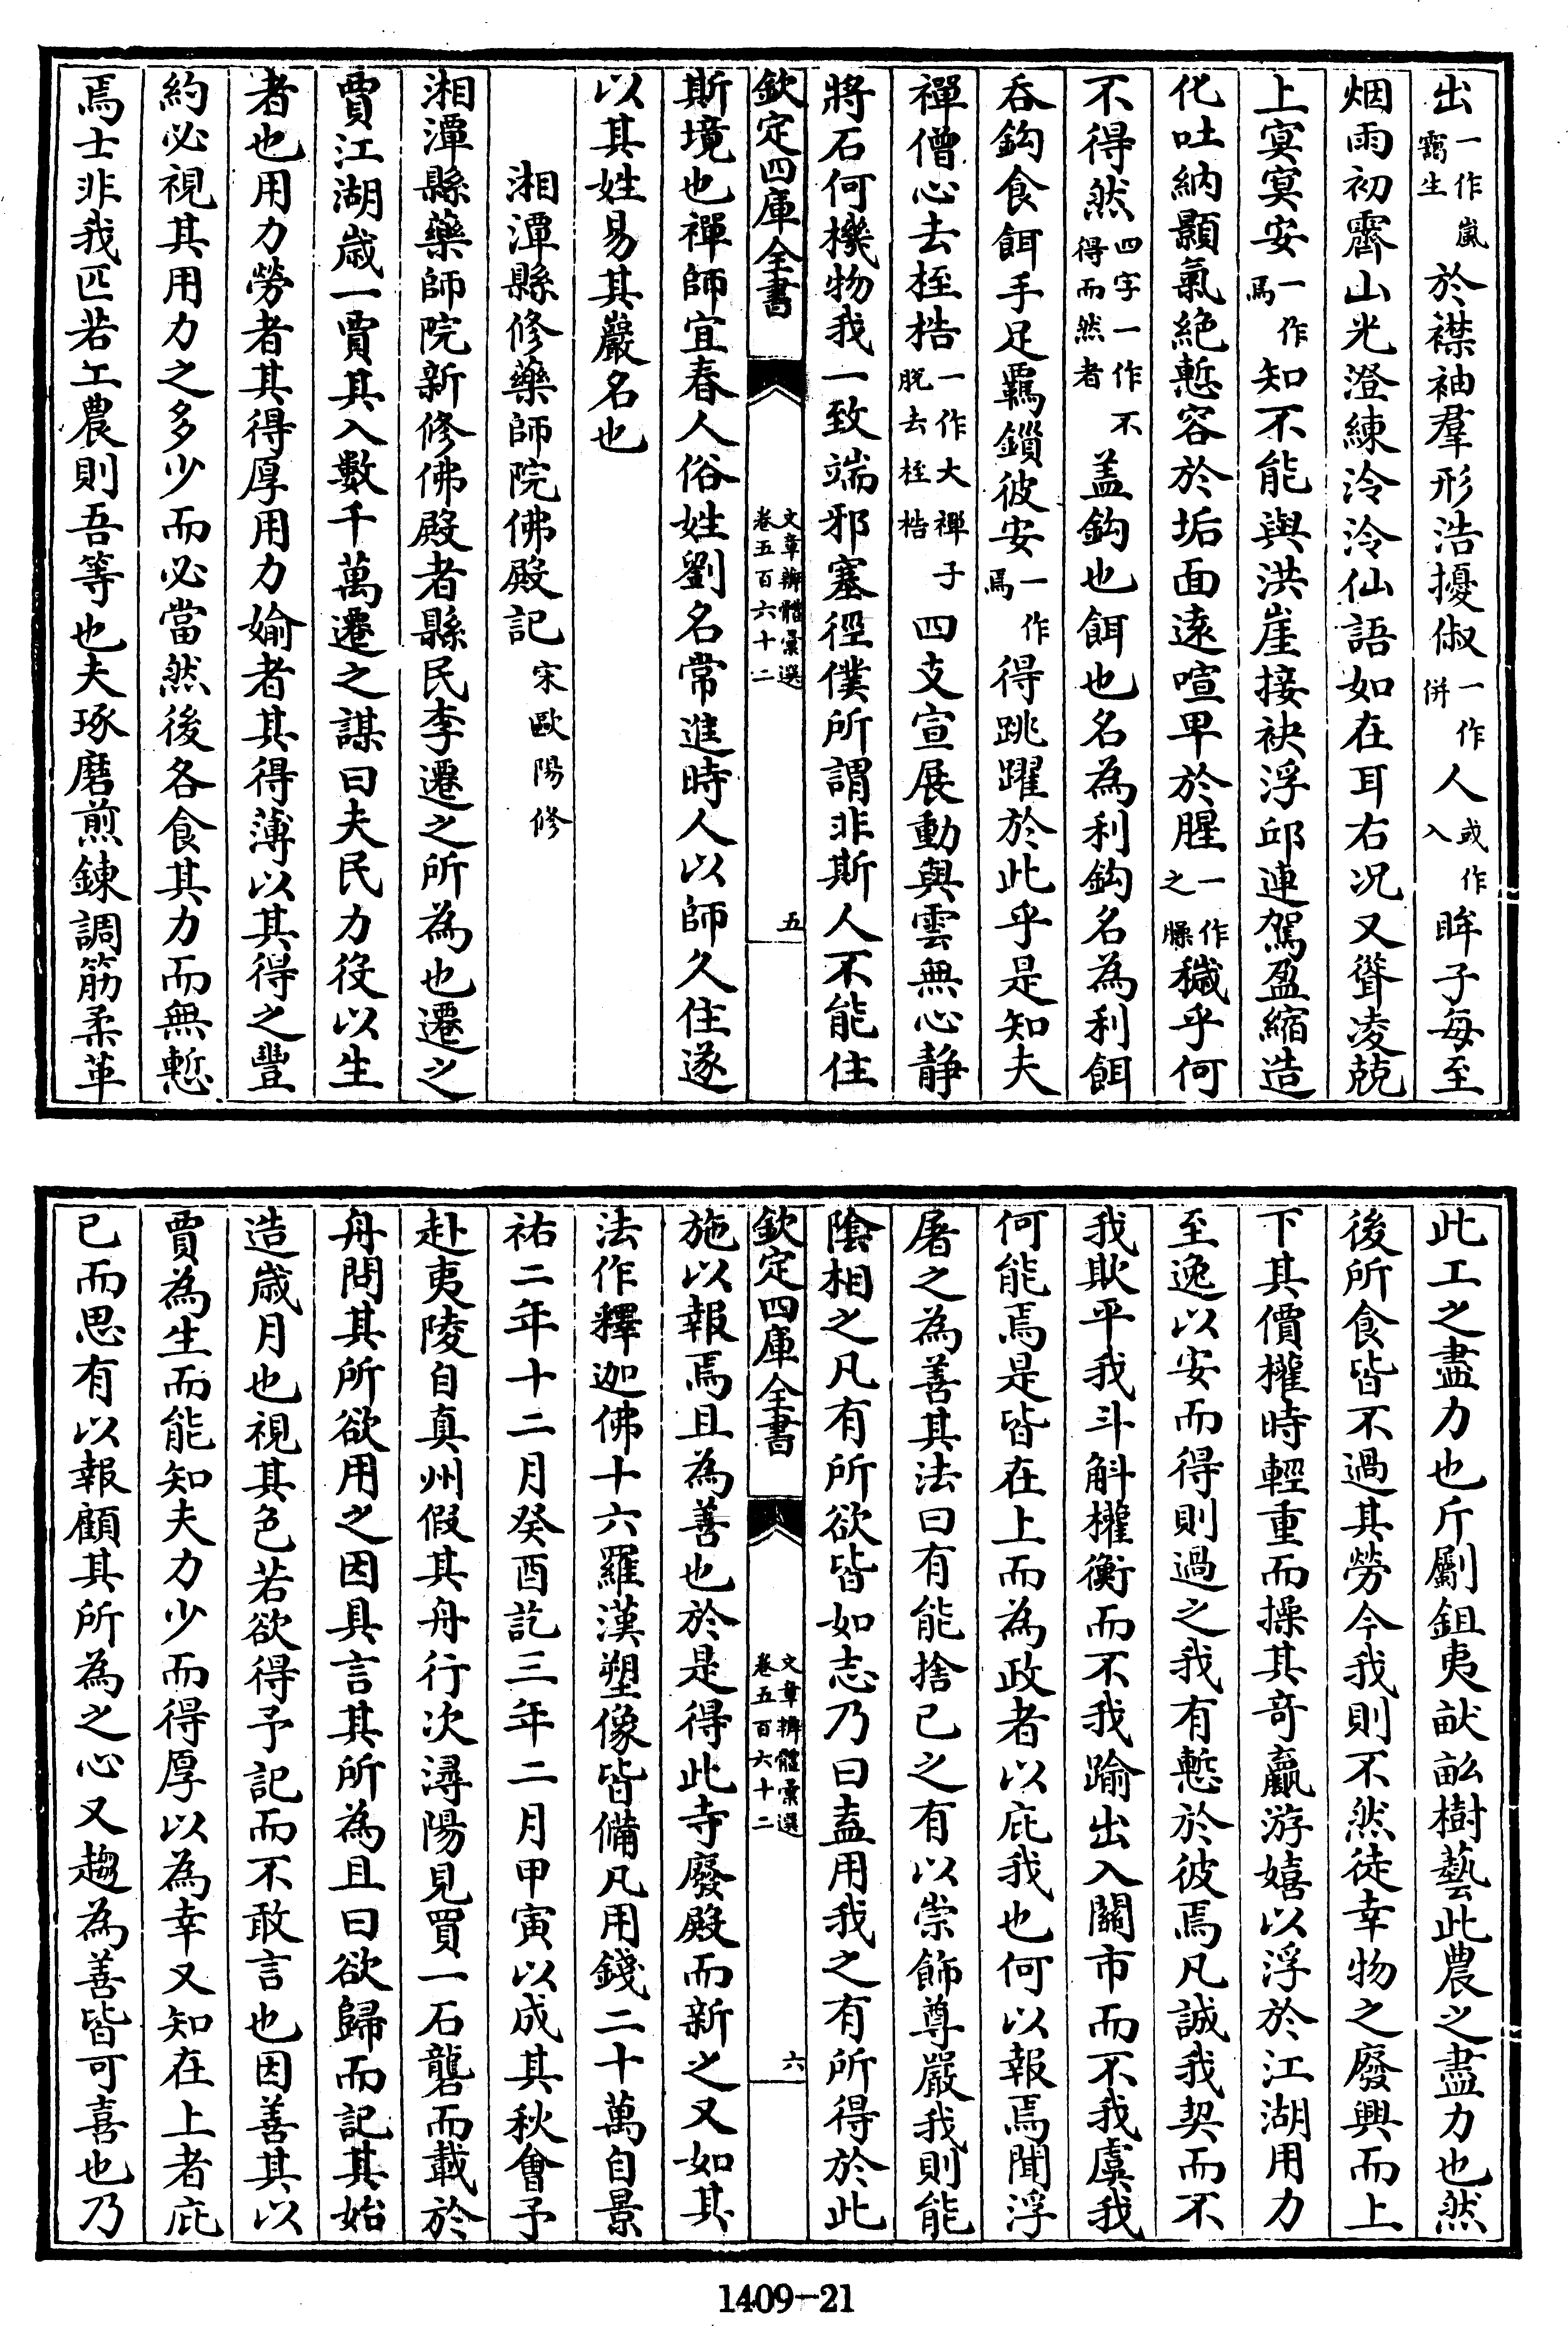 出一作嵐靄生於襟袖羣形浩擾俶一作併人或作入眸子每至
烟雨初霽山光澄練泠泠仙語如在耳右况又聳凌兢
上寞寞安一作焉知不能與洪崖接袂浮邱連駕盈縮造
化吐納顥氣絶慙容於垢面遠喧卑於腥一作之臊穢乎何
不得然四字一作不得而然者盖鈎也餌也名為利鈎名為利餌
吞鈎食餌手足羈鎖彼安一作焉得跳躍於此乎是知夫
禪僧心去桎梏一作大禪子脫去桎梏四支宣展動與雲無心静
將石何機物我一致端邪塞徑僕所謂非斯人不能住
欽定四庫全書 文章辨體彙選 卷五百六十二 五
斯境也禪師宜春人俗姓劉名常進時人以師久住遂
以其姓易其巖名也
湘潭縣修藥師院佛殿記 宋歐陽修
湘潭縣藥師院新修佛殿者縣民李遷之所為也遷之
賈江湖歲一賈其入數千萬遷之謀曰夫民力役以生
者也用力勞者其得厚用力媮者其得薄以其得之豐
約必視其用力之多少而必當然後各食其力而無慙
焉士非我匹若工農則吾等也夫琢磨煎鍊調筋柔革
此工之盡力也斤劚鉏夷畎畝樹藝此農之盡力也然
後所食皆不過其勞今我則不然徒幸物之廢興而上
下其價權時輕重而操其奇贏游嬉以浮於江湖用力
至逸以安而得則過之我有慙於彼焉凡誠我契而不
我欺平我斗斛權衡而不我踰出入關市而不我虞我
何能焉是皆在上而為政者以庇我也何以報焉聞浮
屠之為善其法曰有能捨己之有以崇飾尊嚴我則能
陰相之凡有所欲皆如志乃曰盍用我之有所得於此
欽定四庫全書 文章辨體彙選 卷五百六十二 六
施以報焉且為善也於是得此寺廢殿而新之又如其
法作釋迦佛十六羅漢塑像皆備凡用錢二十萬自景
祐二年十二月癸酉訖三年二月甲寅以成其秋會予
赴夷陵自真州假其舟行次潯陽見買一石礱而載於
舟問其所欲用之因具言其所為且曰欲歸而記其始
造歲月也視其色若欲得予記而不敢言也因善其以
賈為生而能知夫力少而得厚以為幸又知在上者庇
已而思有以報顧其所為之心又趨為善皆可喜也乃
1409-21